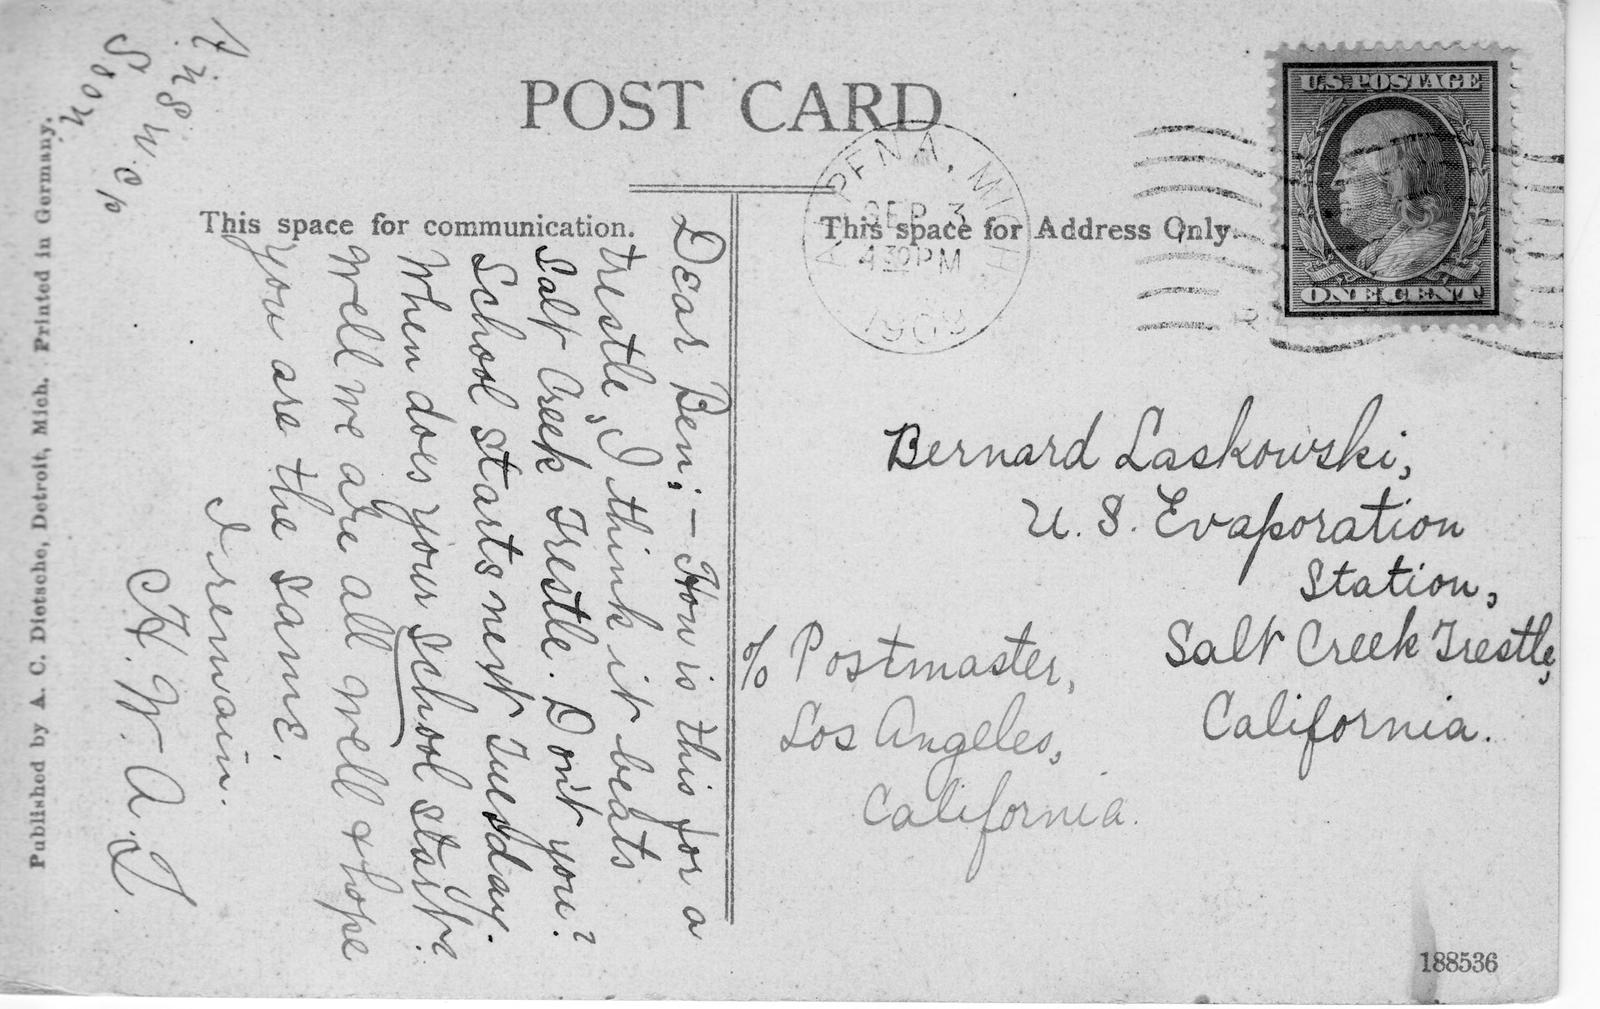 POST CARD
This space for communication.
This space for Address Only.
U.S. POSTAGE
ONE CENT
ALPENA, MICH.
SEP 3
430 PM
1909
Dear Ben:— How is this for a
trestle, I think it beats
Salt Creek Trestle. Don't you?
School starts next Tuesday.
When does your school start?
Well we are all well & hope
you are the same.
I remain.
H. W. A. L.
Answer
Soon
Bernard Laskowski,
U. S. Evaporation
Station,
Salt Creek Trestle,
California.
c/o Postmaster,
Los Angeles,
California.
Published by A. C. Dietsche, Detroit, Mich. Printed in Germany.
188536